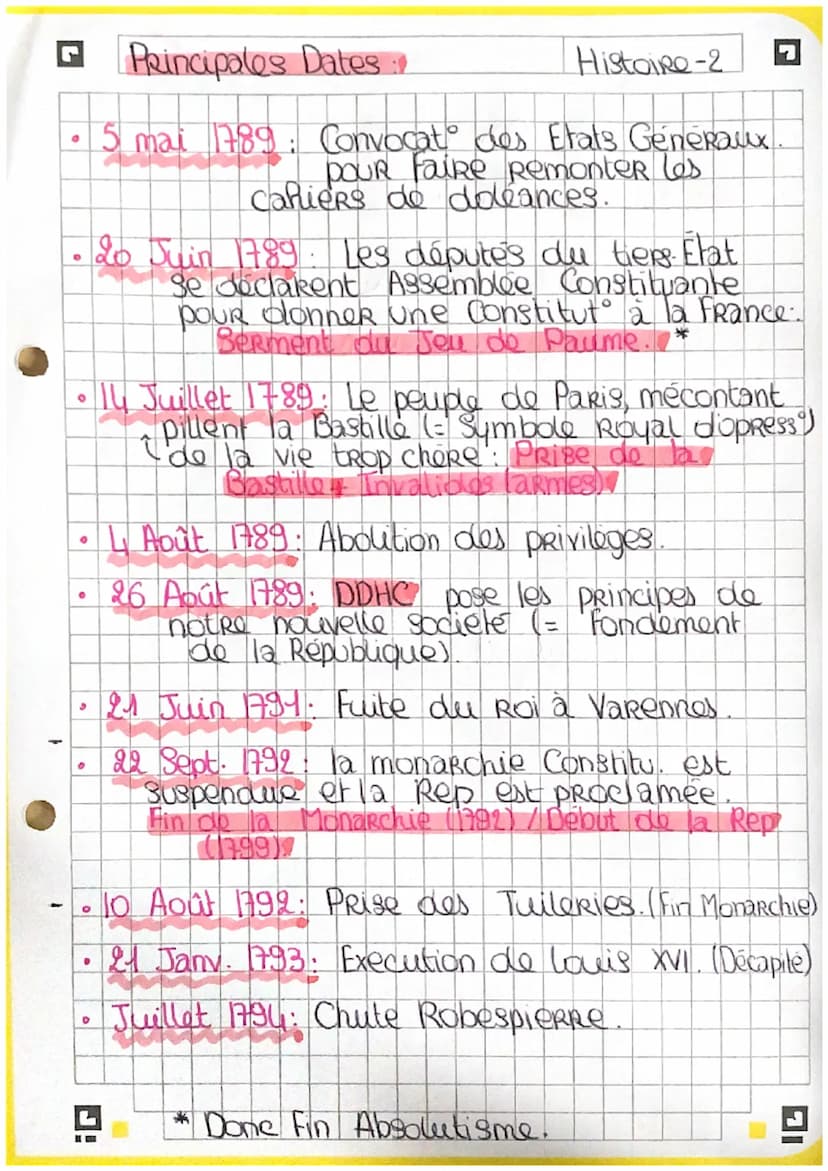 Principales Dates :
Histoire-2
• 5 mai 1789 : Convocat° des Etats Généraux.
pour faire remonter les
cahiers de doléances.
• 20 Juin 1789 : Les députés du tiers-État
se déclarent Assemblée Constituante
pour donner une Constitut° à la France :
Serment du Jeu de Paume. *
• 14 Juillet 1789 : Le peuple de Paris, mécontent
pillent la Bastille (= Symbole Royal d'opress°)
de la vie trop chère : Prise de la
Bastille + Invalides (armes)
• 4 Août 1789 : Abolition des privilèges.
• 26 Août 1789 : DDHC pose les principes de
notre nouvelle société (= Fondement
de la République).
• 21 Juin 1791 : Fuite du Roi à Varennes.
• 22 Sept. 1792 : la monarchie Constitu. est
suspendue et la Rep est proclamée.
Fin de la Monarchie (1792) / Début de la Rep
(1799)
• 10 Août 1792 : Prise des Tuileries. (Fin Monarchie)
• 21 Janv. 1793 : Execution de Louis XVI. (Décapité)
• Juillet 1794 : Chute Robespierre.
* Donc Fin Absolutisme.